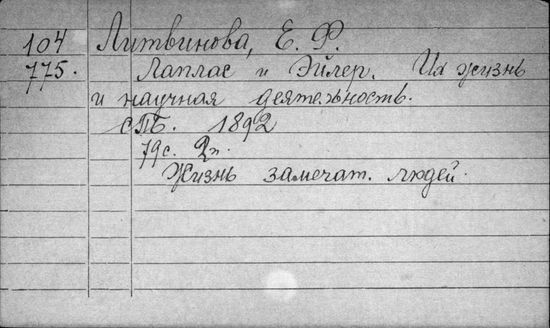 104 Литвинова, Е. Ф.
775. Лаплас и Эйлер. Их жизнь
и научная деятельность.
СПБ. 1892
79с. 2п.
Жизнь замечат. людей.